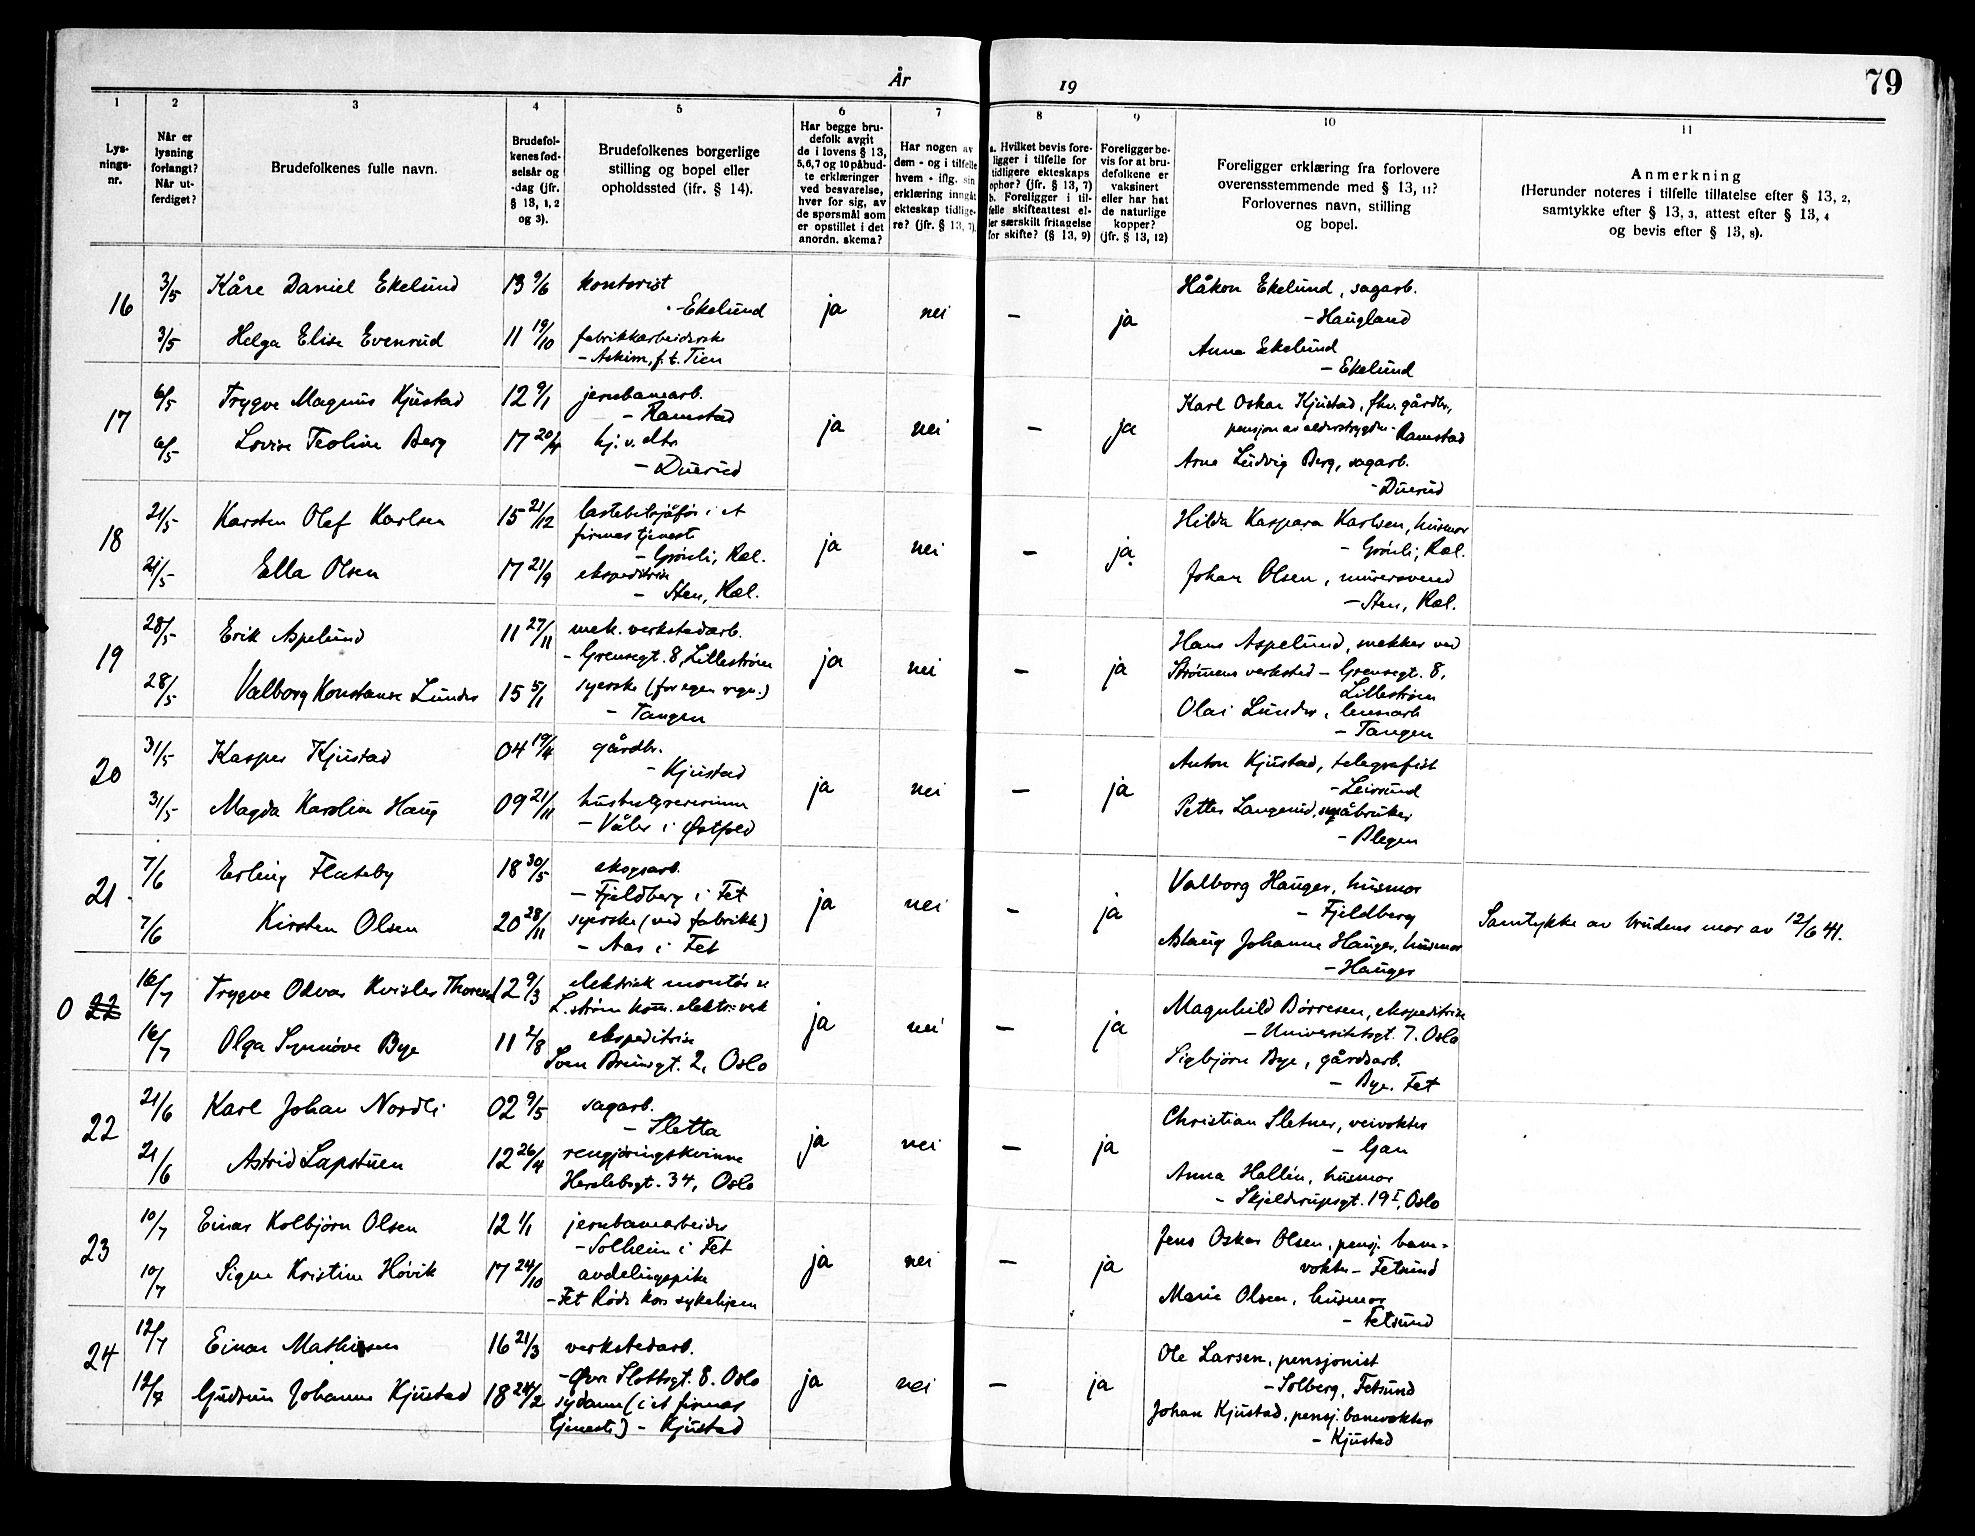 År
19
79
1
2
3
4
5
6
7
8
9
10
11
Lys-
nings-
nr.
Når er
lysning
forlangt?
Når ut-
ferdiget?
Brudefolkenes fulle navn.
Brudefol-
kenes fød-
selsår og
-dag (jfr.
§ 13, 1, 2
og 3).
Brudefolkenes borgerlige
stilling og bopel eller
opholdssted (ifr. § 14).
Har begge bru-
defolk avgit
de i lovens § 13,
5,6,7 og 10 påbud-
te erklæringer
ved besvarelse,
hver for sig, av
de spørsmål som
er opstillet i det
anordn. skema?
Har nogen av
dem - og i tilfelle
hvem - iflg. sin
erklæring inngåt
ekteskap tidlige-
re? (jfr. § 13, 7).
a. Hvilket bevis fore-
ligger i tilfelle for
tidligere ekteskaps
ophør? (jfr. § 13, 7)
b. Foreligger i til-
felle skifteattest el-
ler særskilt fritagelse
for skifte? (§ 13, 9)
Foreligger be-
vis for at bru-
defolkene er
vaksinert
eller har hat
de naturlige
kopper?
(jfr. § 13, 12)
Foreligger erklæring fra forlovere
overensstemmende med § 13, 11?
Forlovernes navn, stilling
og bopel.
Anmerkning
(Herunder noteres i tilfelle tillatelse efter § 13, 2,
samtykke efter § 13, 3, attest efter § 13, 4
og bevis efter § 13, 8).
16
3/5 Kåre Daniel Ekelund 13 9/6 kontorist
- Ekelund
3/5 Helga Elise Evenrud 11 19/10 fabrikkarbeiderske
- Askim, f.t. Tien
ja nei - ja
Håkon Ekelund, sagarb.
- Haugland
Anna Ekelund
- Ekelund
17
6/5 Trygve Magnus Kjustad 12 9/1 jernbanearb.
- Ramstad
6/5 Lovise Teoline Berg 17 20/4 hj.v. dtr
- Duerud
ja nei - ja
Karl Oskar Kjustad, fhv. gårdbr,
pensjon av alderstrygden - Ramstad
Arne Ludvig Berg, sagarb.
- Duerud
18
21/5 Karsten Olaf Karlsen 15 21/12 lastebilsjåfør i et
firmas tjeneste
- Grønli, Ræl.
21/5 Ella Olsen 17 21/9 ekspeditrise
- Sten, Ræl.
ja nei - ja
Hilda Kaspara Karlsen, husmor
- Grønli, Ræl.
Johan Olsen, murersvend
- Sten, Ræl.
19
28/5 Erik Aspelund 11 27/11 mek. verkstedarb.
- Grensegt. 8, Lillestrøm
28/5 Valborg Konstanse Lunder 15 5/1 syerske (for egen regn.)
- Tangen
ja nei - ja
Hans Aspelund, snekker ved
Strømmens verksted - Grensegt. 8,
Lillestrøm
Olai Lunder, lensearb
- Tangen
20
31/5 Kasper Kjustad 04 19/4 gårdbr.
- Kjustad
31/5 Magda Karoline Haug 09 21/11 husbestyrerinne
- Våler i Østfold
ja nei - ja
Anton Kjustad, telegrafist
- Leirsund
Petter Langerud, småbruker
- Blegen
21
7/6 Erling Flateby 18 30/5 skogsarb.
- Fjeldberg i Fet
7/6 Kirsten Olsen 20 28/11 syerske (ved fabrikk)
- Aas i Fet
ja nei - ja
Valborg Hauger, husmor
- Fjeldberg
Aslaug Johanne Hauger, husmor
- Hauger
Samtykke av brudens mor av 12/6 41.
0 22
16/7 Trygve Odvar Kvisler Thoresen 12 9/3 elektrisk montør v.
L.strøm kom. elektr. verk
16/7 Olga Synnøve Bye 11 2/8 ekspeditrise
Sven Brunsgt. 2, Oslo
ja nei - ja
Magnhild Børresen, ekspeditrise
- Universitetsgt. 7. Oslo
Sigbjörn Bye, gårdsarb.
- Bye, Fet
22
21/6 Karl Johan Nordli 02 9/5 sagarb.
- Sletta
21/6 Astrid Lapstuen 12 26/4 rengjøringskvinne
Herslebsgt. 34, Oslo
ja nei - ja
Christian Sletner, veivokter
- Gan
Anna Hallén, husmor
- Skjelderupsgt. 19 I, Oslo
23
10/7 Einar Kolbjörn Olsen 12 1/1 jernbanearbeider
- Solheim i Fet
10/7 Signe Kristine Høvik 17 24/10 avdelingspike
- Fet Røde kors sykehjem
ja nei - ja
Jens Oskar Olsen, pensj. bane-
vokter - Fetsund
Marie Olsen, husmor
- Fetsund
24
12/7 Einar Mathisen 16 21/3 verkstedarb.
- Øvre Slottsgt. 8. Oslo
12/7 Gudrun Johanne Kjustad 18 24/2 sydame (i et firmas
tjeneste) - Kjustad
ja nei - ja
Ole Larsen, pensjonist
- Solberg, Fetsund
Johan Kjustad, pensj. banevokter
- Kjustad